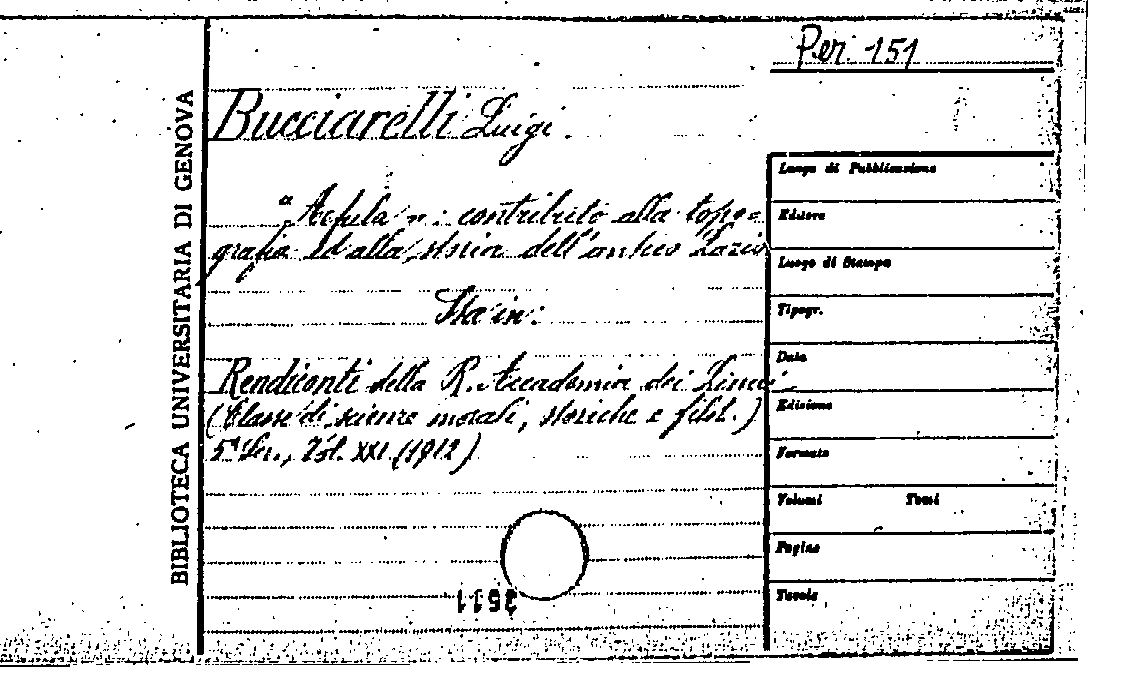 Per. 151
BIBLIOTECA UNIVERSITARIA DI GENOVA
Bucciarelli Luigi.
"Aefula": contributo alla topo=
grafia ed alla storia dell'antico Lazio
Sta in:
Rendiconti della R. Accademia dei Lincei
(Classe di scienze morali, storiche e filol.)
5ª Ser., Vol. XXI (1912)
Luogo di Pubblicazione
Editore
Luogo di Stampa
Tipogr.
Data
Edizione
Formato
Volumi Tomi
Pagine
Tavole